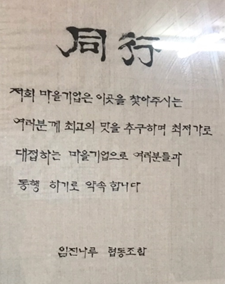 同行
저희 마을기업은 이곳을 찾아주시는
여러분께 최고의 맛을 추구하며 최저가로
대접하는 마을기업으로 여러분들과
동행 하기로 약속 합니다
임진나루 협동조합